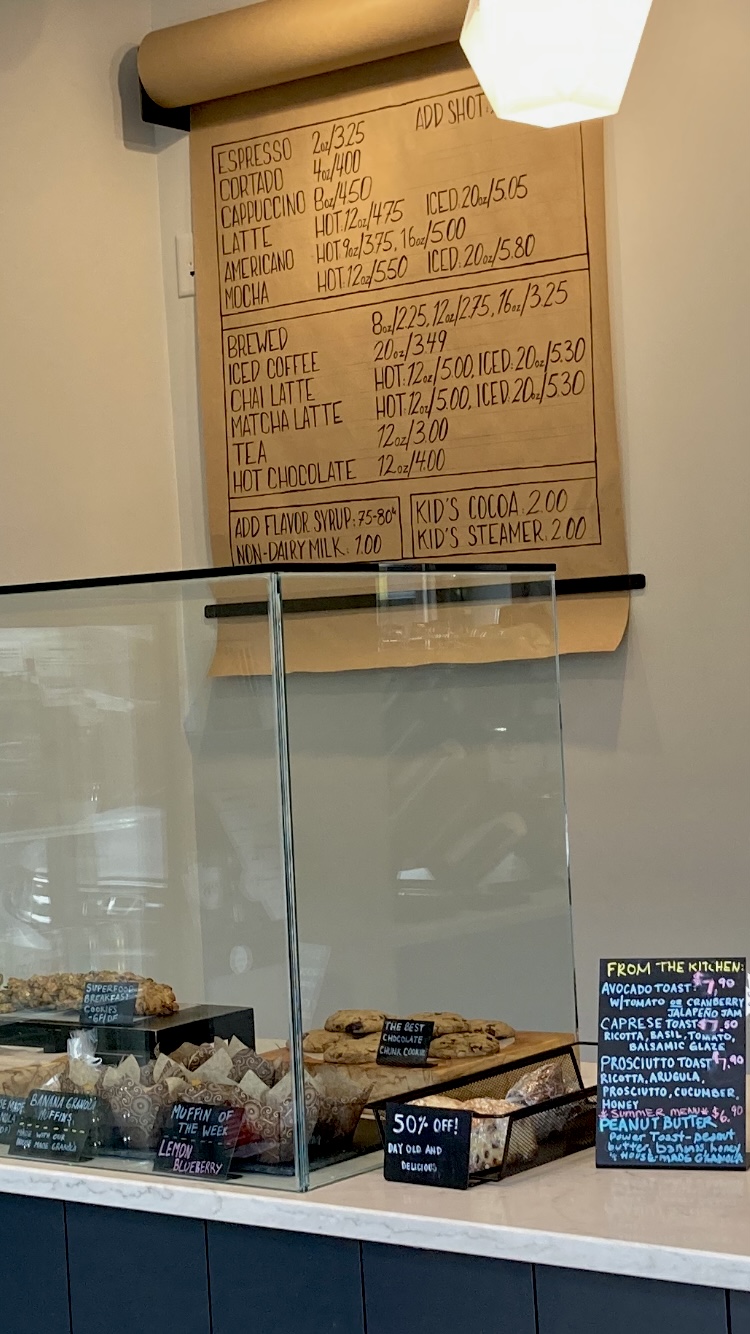 ADD SHOT:
ESPRESSO 2oz/3.25
CORTADO 4oz/400
CAPPUCCINO 8oz/450
LATTE HOT:12oz/475 ICED:20oz/5.05
AMERICANO HOT:9oz/375, 16oz/500
MOCHA HOT:12oz/550 ICED:20oz/5.80
BREWED 8oz/2.25, 12oz/2.75, 16oz/3.25
ICED COFFEE 20oz/349
CHAI LATTE HOT:12oz/5.00, ICED:20oz/5.30
MATCHA LATTE HOT:12oz/5.00, ICED:20oz/5.30
TEA 12oz/3.00
HOT CHOCOLATE 12oz/4.00
ADD FLAVOR SYRUP: 75-80¢
NON-DAIRY MILK: 1.00
KID'S COCOA: 2.00
KID'S STEAMER: 2.00
SUPERFOOD
BREAKFAST
COOKIES
-GF/DF
THE BEST
CHOCOLATE
CHUNK COOKIE
BANANA GRANOLA
MUFFINS
MADE WITH OUR
HOUSE MADE GRANOLA
MUFFIN OF
THE WEEK
LEMON
BLUEBERRY
50% OFF!
DAY OLD AND
DELICIOUS
FROM THE KITCHEN:
AVOCADO TOAST: $7.90
W/TOMATO OR CRANBERRY
JALAPEÑO JAM
CAPRESE TOAST $7.50
RICOTTA, BASIL, TOMATO,
BALSAMIC GLAZE
PROSCIUTTO TOAST $7.90
RICOTTA, ARUGULA,
PROSCIUTTO, CUCUMBER,
HONEY
*SUMMER MENU* $6.90
PEANUT BUTTER
Power Toast-peanut
butter, banana, honey
& HOUSE-MADE GRANOLA